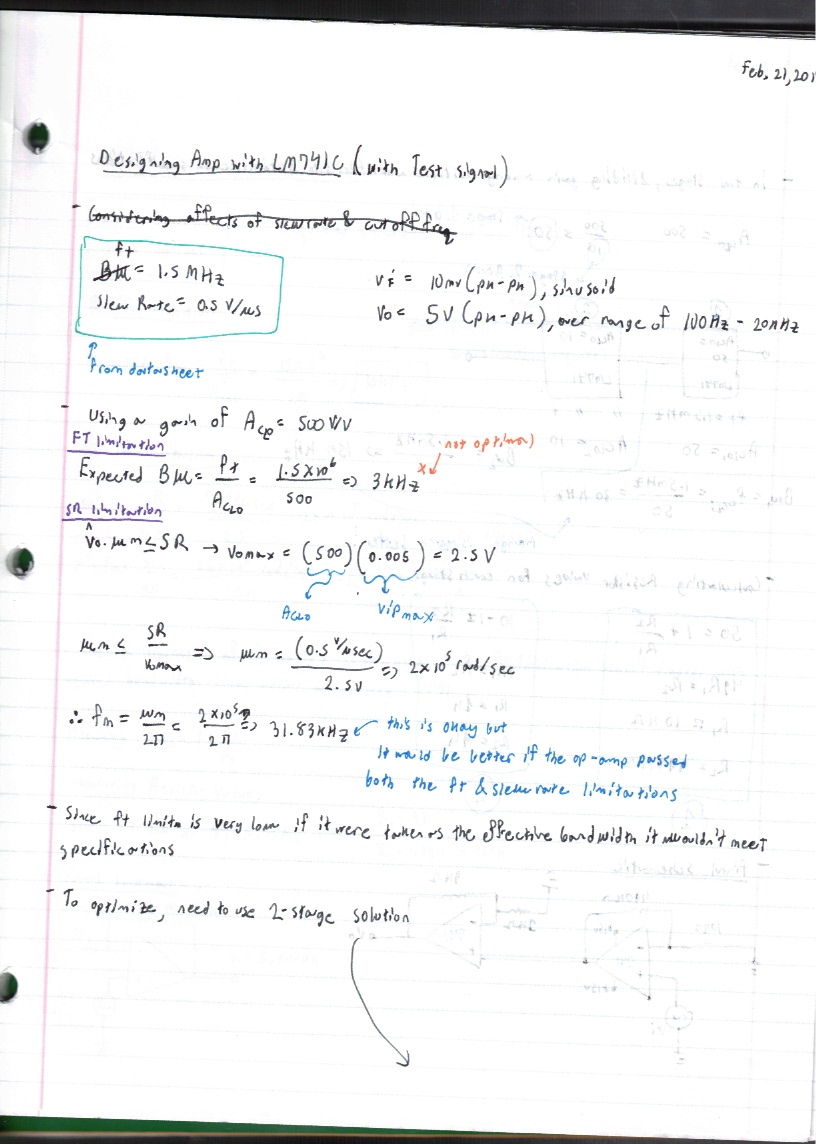 Feb. 21, 201
Designing Amp with LM741C (with Test signal)
- Considering affects of slew rate & cutoff freq
ft
BW = 1.5 MHz
Slew Rate = 0.5 V/µs
Vi = 10mv (pk-pk), sinusoid
Vo = 5V (pk-pk), over range of 100Hz - 20kHz
From datasheet
- Using a gain of Aclo = 500 V/V
FT limitation
Expected BW = ft / ACLO = 1.5 x10⁶ / 500 => 3kHz x not optimal
SR limitation
V̂o. ωm ≤ SR → Vomax = (500)(0.005) = 2.5V
ACLO Vipmax
ωm ≤ SR / Vomax => ωm = (0.5 V/µsec) / 2.5V => 2x10⁵ rad/sec
∴ fm = ωm / 2π = 2x10⁵ / 2π => 31.83kHz this is okay but
it would be better if the op-amp passed
both the ft & slew rate limitations
- Since ft limit is very low if it were taken as the effective bandwidth it wouldn't meet
specifications
- To optimize, need to use 2-stage solution